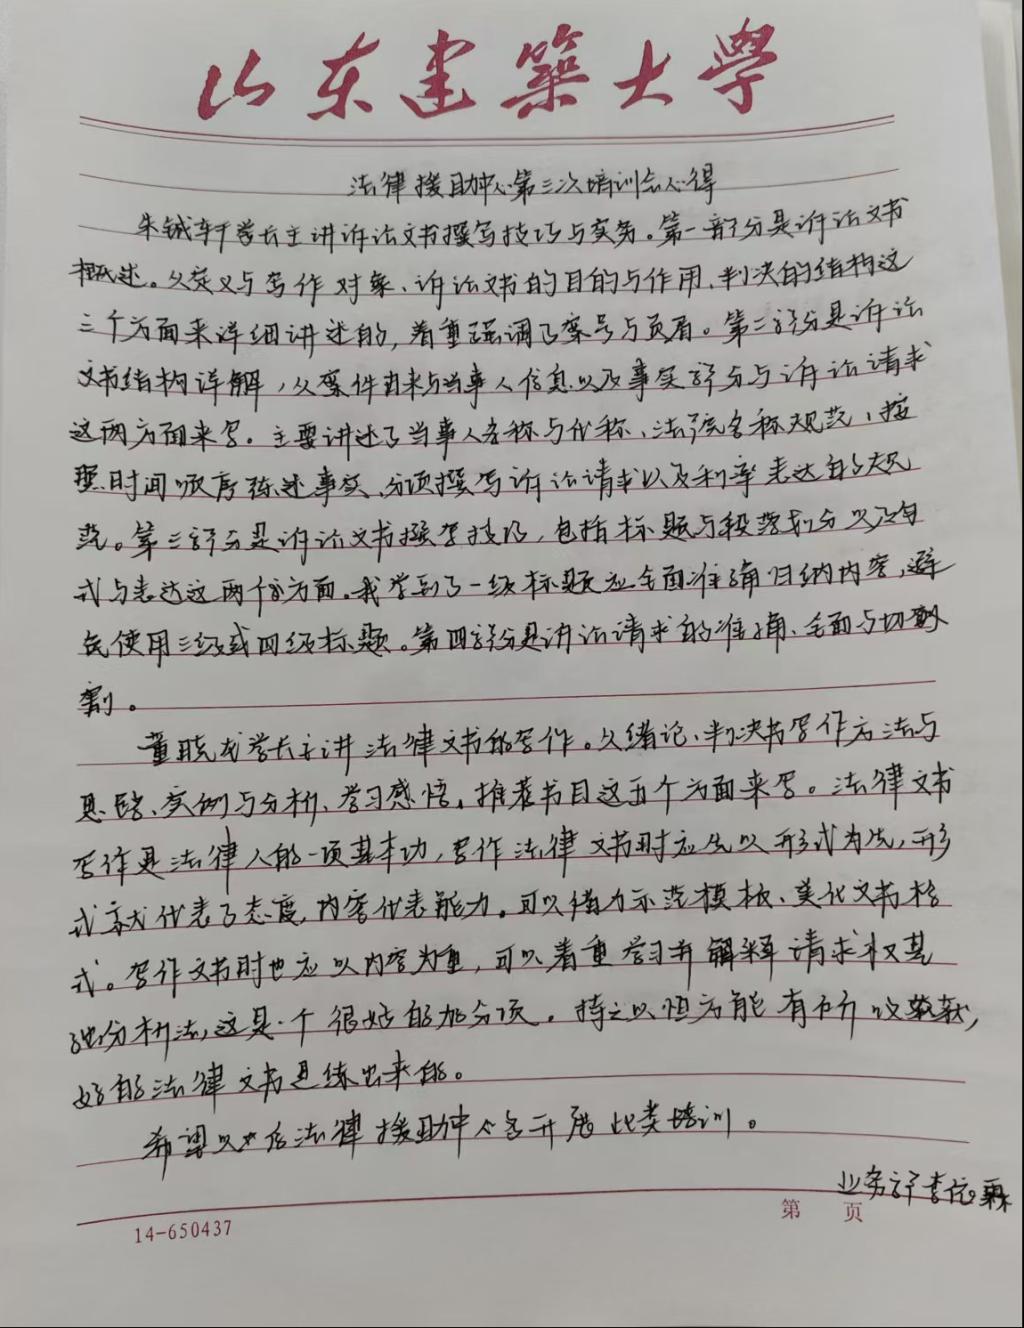 山东建築大學
法律援助中心第三次培训会心得
朱铖轩学长主讲诉讼文书撰写技巧与实务。第一部分是诉讼文书
概述。从定义与写作对象、诉讼文书的目的与作用、判决的结构这
三个方面来详细讲述的,着重强调了案号与页眉。第二部分是诉讼
文书结构详解,从案件由来与当事人信息以及事实部分与诉讼请求
这两方面来写。主要讲述了当事人名称与代称、法院名称规范、按
照时间顺序陈述事实、分项撰写诉讼请求以及利率表达的规
范。第三部分是诉讼文书撰写技巧,包括标题与段落划分以及句
式与表达这两个方面。我学到了一级标题应全面准确归纳内容,避
免使用三级或四级标题。第四部分是诉讼请求的准确、全面与切
割。
董晓龙学长主讲法律文书的写作。从绪论、判决书写作方法与
思路、实例与分析、学习感悟、推荐书目这五个方面来写。法律文书
写作是法律人的一项基本功,写作法律文书时应先以形式为先,形
式就代表了态度,内容代表能力。可以借力示范模板、美化文书格
式。写作文书时也应以内容为重,可以着重学习并解释请求权基
础分析法,这是一个很好的加分项。持之以恒方能有所收获,
好的法律文书是练出来的。
希望以后法律援助中心多开展此类培训。
业务部李依霖
第 页
14-650437